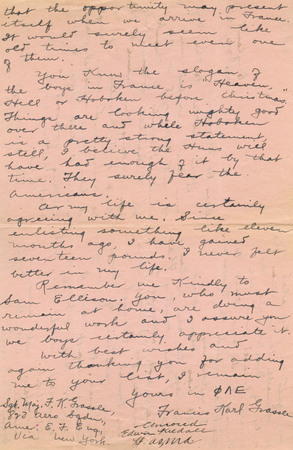 that the opportunity may present
itself when we arrive in France.
It would surely seem like
old times to meet even one
of them.
You know the slogan of
the boys in France is "Heaven,
Hell or Hoboken before Christmas."
Things are looking mighty good
over there and while Hoboken
is a pretty strong statement,
still, I believe the Huns will
have had enough of it by that
time. They surely fear the
Americans.
Army life is certainly
agreeing with me. Since
enlisting something like eleven
months ago, I have gained
seventeen pounds. I never felt
better in my life.
Remember me kindly to
Sam Ellison. You, who must
remain at home, are doing a
wonderful work and I assure you
we boys certainly appreciate it.
With best wishes and
again thanking you for adding
me to your list, I remain
Yours in ΦΛΕ
Francis Karl
Sgt. Maj. F. K.
Aero Sqdn.,
Amer. E. F. Eng,
Via New York
Censored
Edwin